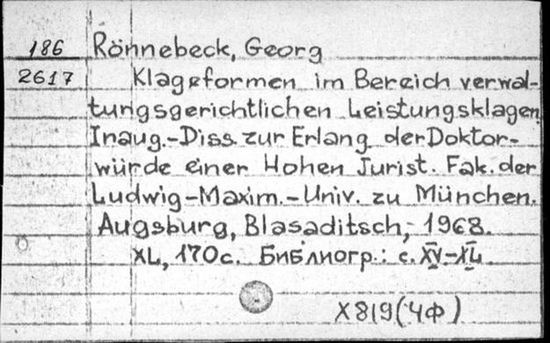 186 Rönnebeck, Georg
2617 Klageformen im Bereich verwal-
tungsgerichtlichen Leistungsklagen.
Inaug.-Diss. zur Erlang. der Doktor-
würde einer Hohen Jurist. Fak. der
Ludwig-Maxim.-Univ. zu München.
Augsburg, Blasaditsch, 1968.
XL, 170 с. Библиогр.: с. XV-XL.
X819(4Ф)